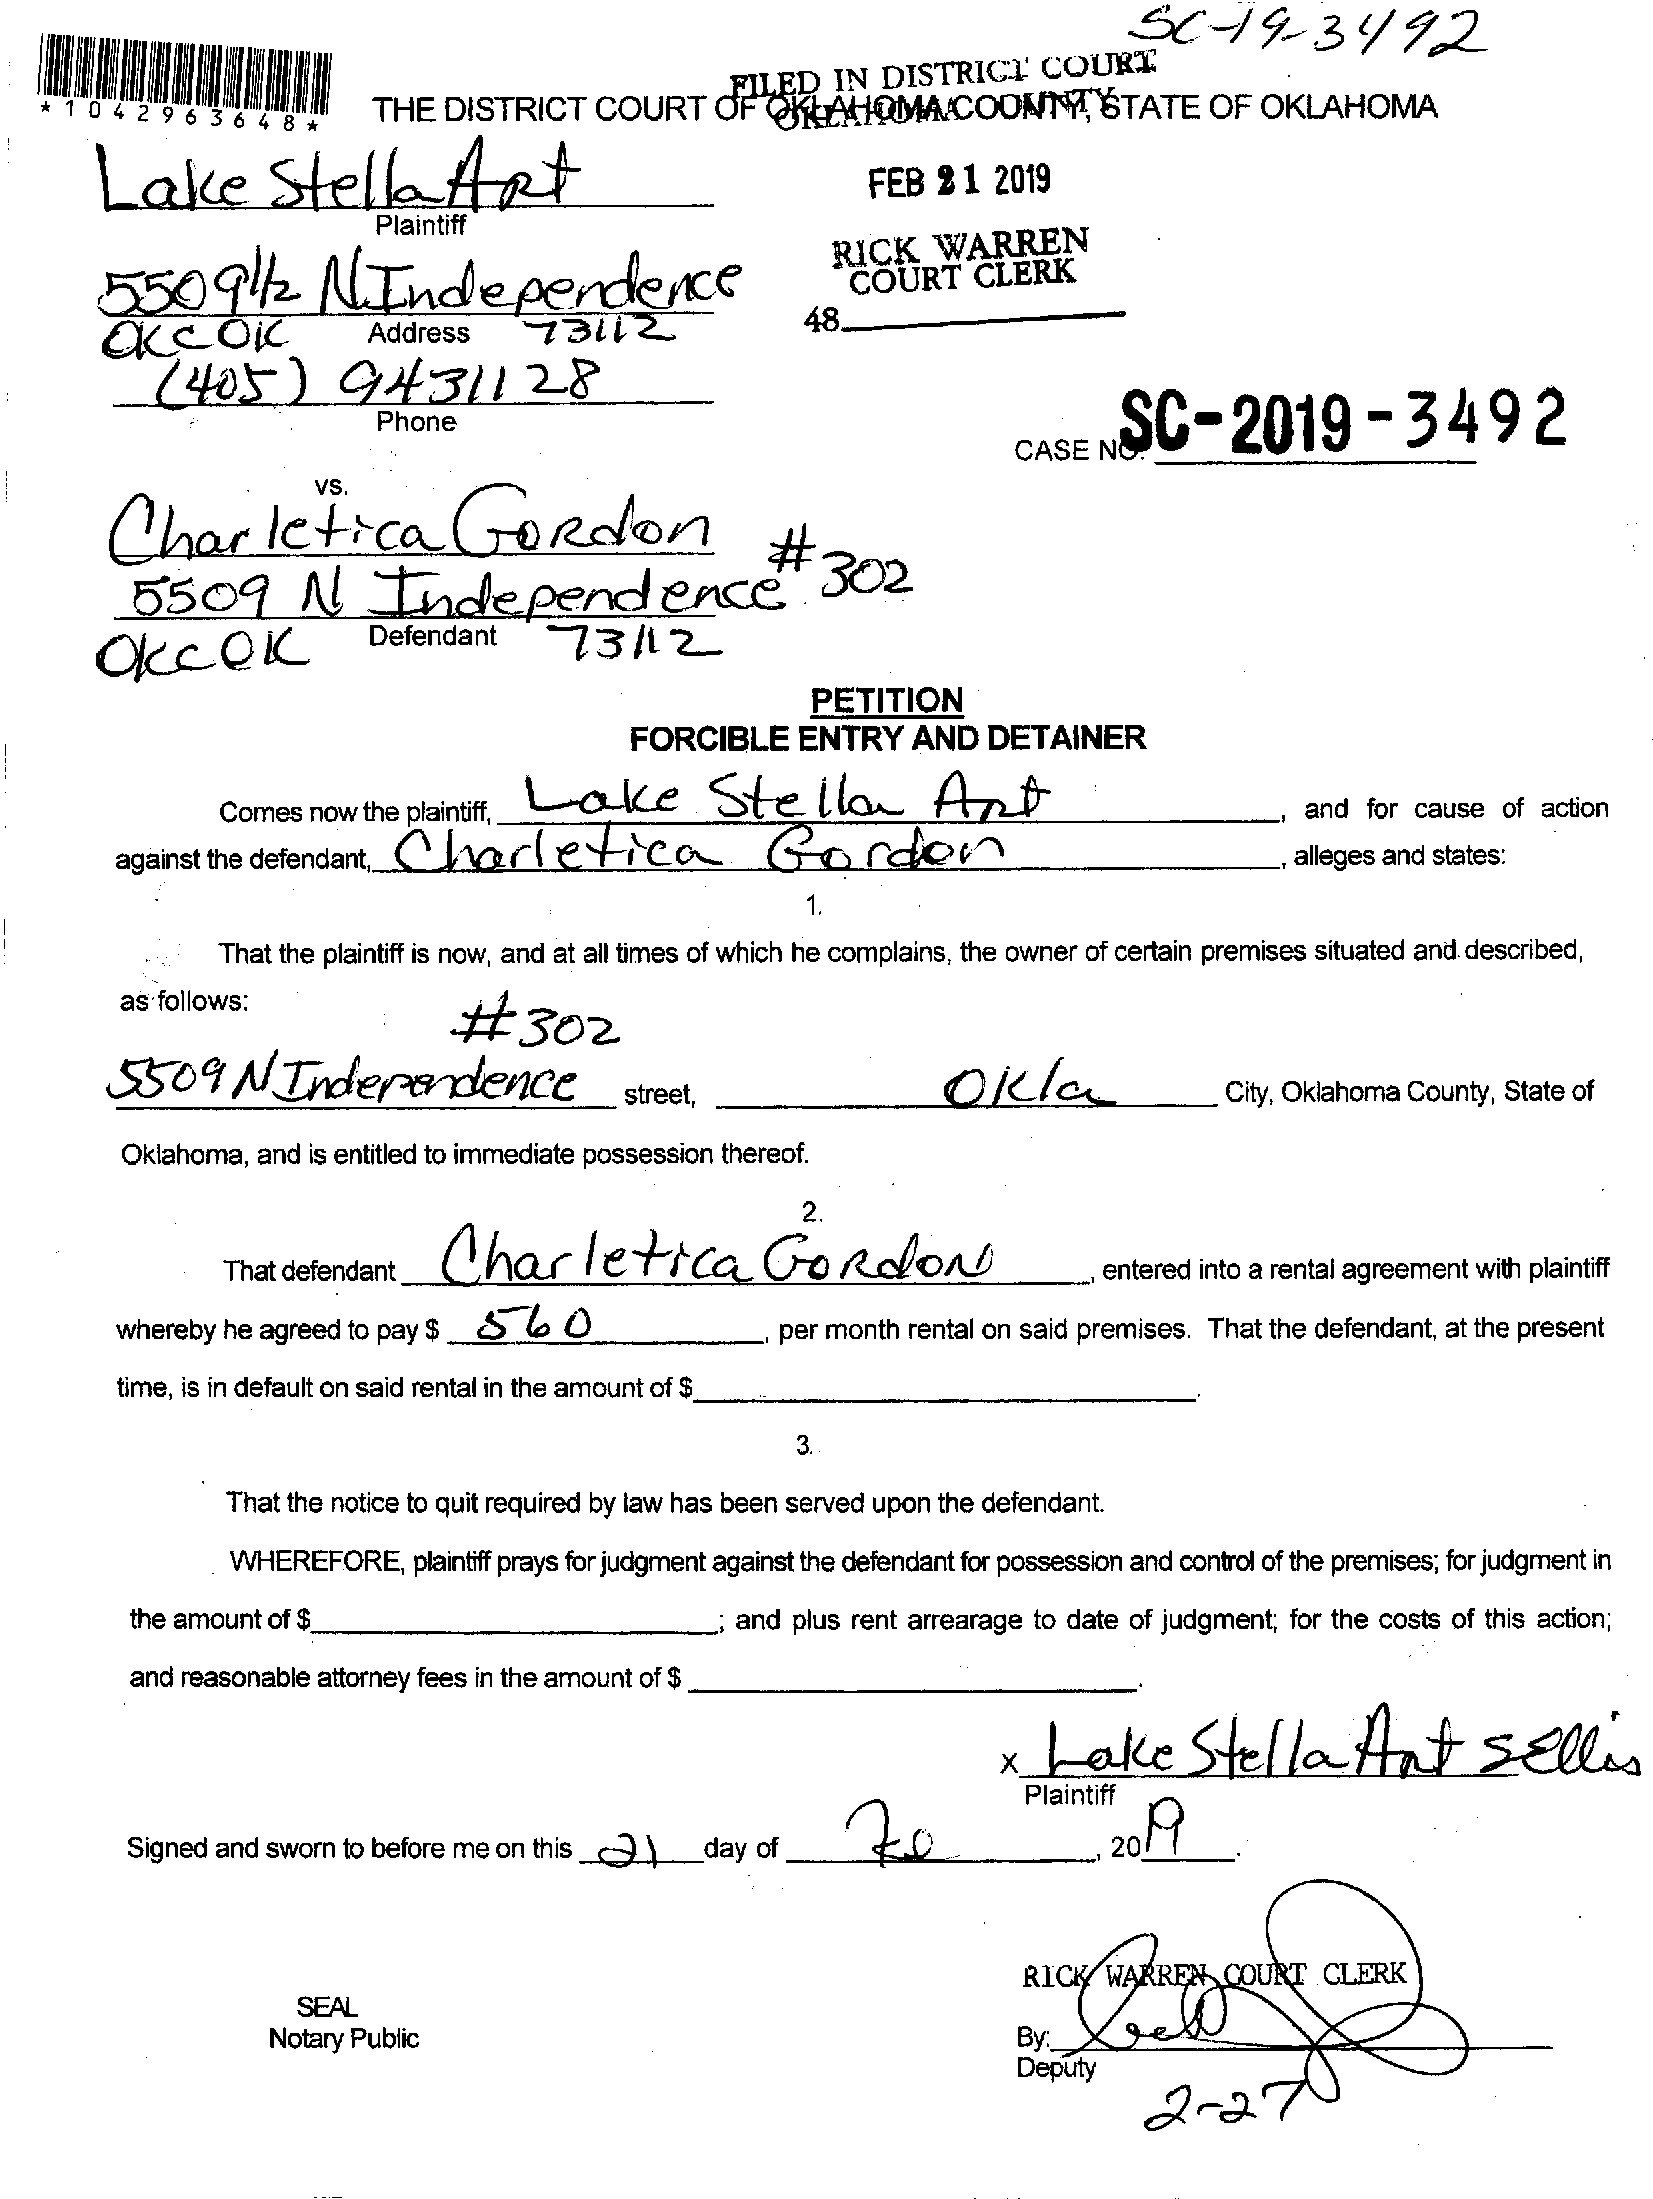 SC-19-3492
*1042963648*
FILED IN DISTRICT COURT
OKLAHOMA COUNTY
THE DISTRICT COURT OF OKLAHOMA COUNTY, STATE OF OKLAHOMA
Lake Stella Apt
Plaintiff
FEB 21 2019
RICK WARREN
COURT CLERK
48
5509 1/2 N. Independence
OKC OK Address 73112
(405) 9431128
Phone
CASE NO. SC-2019-3492
vs.
Charletica Gordon
5509 N Independence #302
OKC OK Defendant 73112
PETITION
FORCIBLE ENTRY AND DETAINER
Comes now the plaintiff, Lake Stella Apt, and for cause of action
against the defendant, Charletica Gordon, alleges and states:
1.
That the plaintiff is now, and at all times of which he complains, the owner of certain premises situated and described,
as follows:
#302
5509 N Independence street, Okla City, Oklahoma County, State of
Oklahoma, and is entitled to immediate possession thereof.
2.
That defendant Charletica Gordon, entered into a rental agreement with plaintiff
whereby he agreed to pay $ 560, per month rental on said premises. That the defendant, at the present
time, is in default on said rental in the amount of $.
3.
That the notice to quit required by law has been served upon the defendant.
WHEREFORE, plaintiff prays for judgment against the defendant for possession and control of the premises; for judgment in
the amount of $; and plus rent arrearage to date of judgment; for the costs of this action;
and reasonable attorney fees in the amount of $.
x Lake Stella Apt SEllis
Plaintiff
Signed and sworn to before me on this 21 day of, 2019.
RICK WARREN COURT CLERK
SEAL
Notary Public
By:
Deputy
2-27